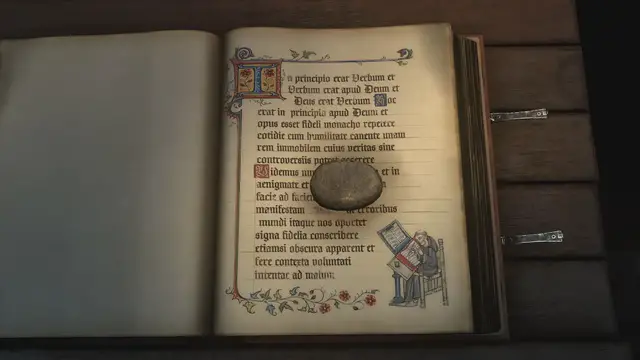 In principio erat Verbum et
Verbum erat apud Deum et
Deus erat Verbum Hoc
erat in principio apud Deum et
opus esset fideli monacho repetere
cotidie cum humilitate canente unam
rem immobilem cuius veritas sine
controversiis asserere
Videmus et in
aenigmate et
facie ad
manifestam in erroribus
mundi itaque nos oportet
signa fidelia conscribere
etiamsi obscura apparent et
fere contexta voluntati
intentae ad malum